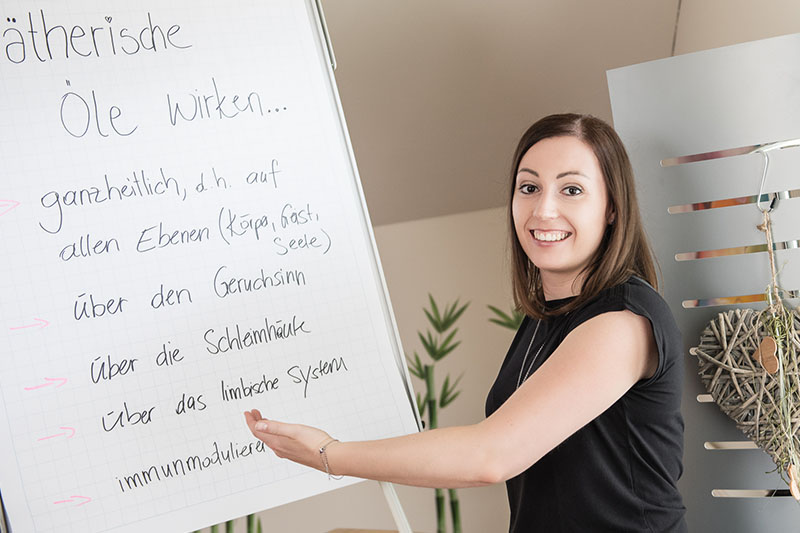 ätherische
Öle wirken...
ganzheitlich, d.h. auf
allen Ebenen (Körper, Geist,
Seele)
über den Geruchsinn
über die Schleimhäute
über das limbische System
immunmodulieren